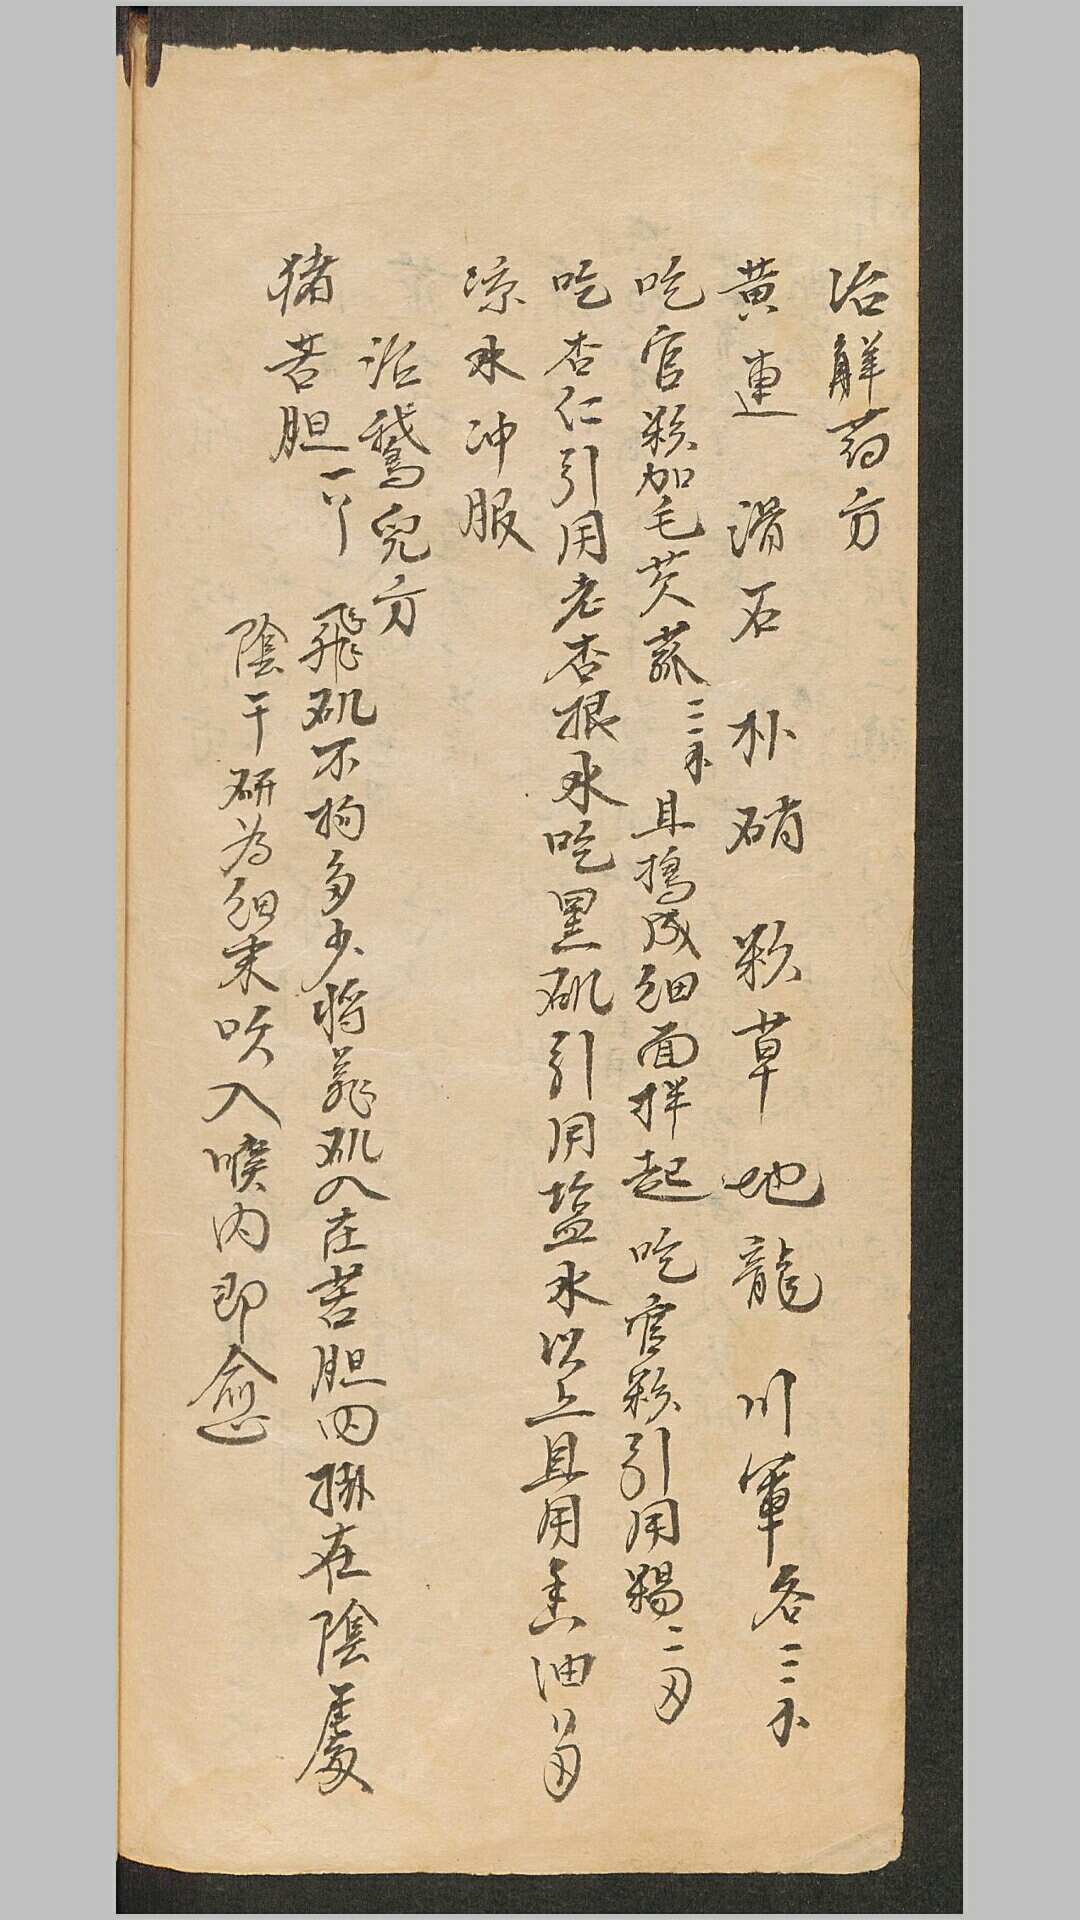 治解药方
黄連 滑石 朴硝 草 地龍 川軍各三
吃官粉加毛茨菰三 且搗成細面拌起吃官粉引用糖二
吃杏仁引用老杏根水吃黑矾引用盐水以上且用香油
凉水冲服
治鵝兒方
猪苦胆一个
飛矾不拘多少将飛矾入在苦胆内掛在陰處
陰干研為細末吹入喉内即愈